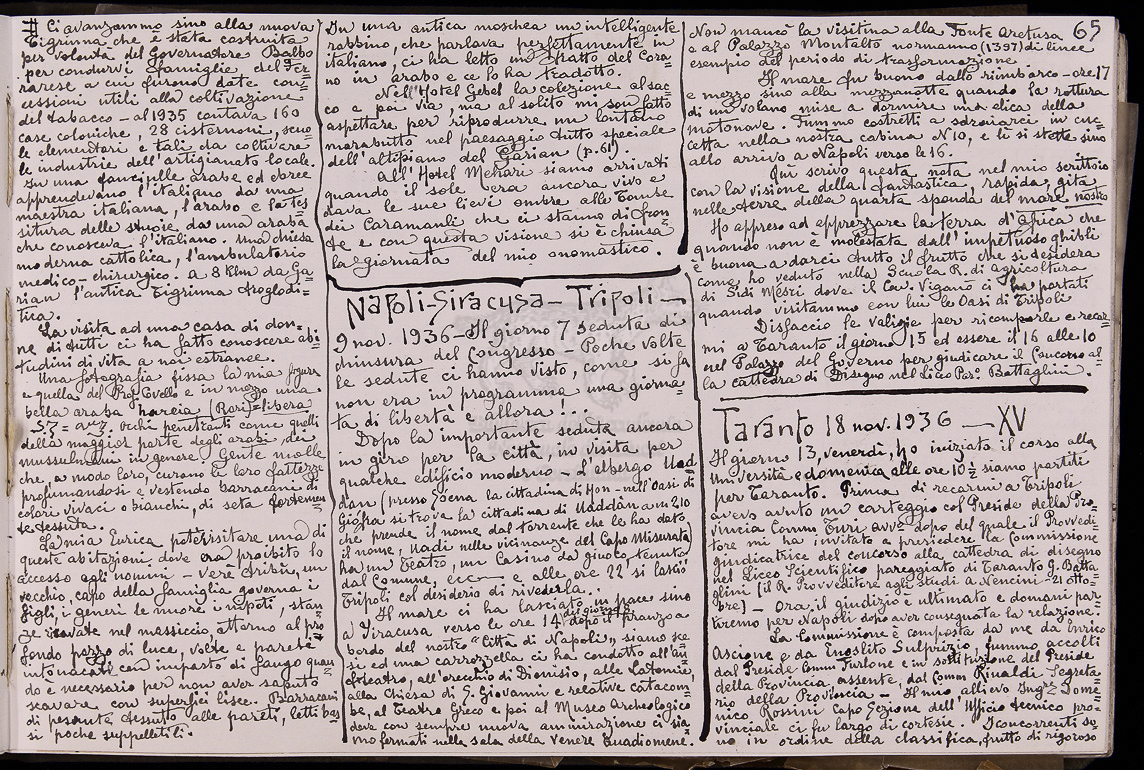 65
Ci avanzammo sino alla nuova
Tigrinna che è stata costruita
per volontà del Governatore Balbo
per condurvi famiglie del Fer=
rarese a cui furono date con=
cessioni utili alla coltivazione
del tabacco - al 1935 contava 160
case coloniche, 28 cisternoni, scuo
le elementari e tali da coltivare
le industrie dell'artigianato locale.
In una fanciulle arabe ed ebree
apprendevano l'italiano da una
maestra italiana, l'arabo e la tes
situra delle stuoie da una araba
che conosceva l'italiano. Una chiesa
moderna cattolica, l'ambulatorio
medico-chirurgico. a 8 Klm da Ga=
rian l'antica Tigrinna troglodi=
tica.
La visita ad una casa di don=
ne di tutti ci ha fatto conoscere abi=
tudini di vita a noi estranee.
Una fotografia fissa la mia figura
e quella del Prof. Ovello e in mezzo una
bella araba hareia (Rori) = libera
57 = occhi penetranti come quelli
della maggior parte degli arabi, dei
mussulmani in genere. Gente molle
che, a modo loro, curano le loro fattezze
profumandosi e vestendo barracani di
colori vivaci o bianchi, di seta fortemen
te tessuta.
La mia Eurica potè visitare una di
queste abitazioni dove era proibito lo
accesso agli uomini - Vere tribù, un
vecchio, capo della famiglia governa i
figli, i generi le nuore i nipoti, stan
ze scavate nel massiccio, attorno al pro=
fondo pozzo di luce, volte e pareti
intonacate con impasto di fango quan=
do è necessario per non aver saputo
scavare con superfici lisce. Barracani
di pesante tessuto alle pareti, letti bas
si, poche suppellettili.
In una antica moschea un intelligente
rabbino, che parlava perfettamente in
italiano, ci ha letto un tratto del Cora=
no in arabo e ce lo ha tradotto.
Nell'Hotel Gebel la colezione al sac=
co e poi via, ma al solito mi son fatto
aspettare per riprodurre un lontano
marabutto nel paesaggio tutto speciale
dell'altipiano del Garian (p. 61)
All'Hotel Mehari siamo arrivati
quando il sole era ancora vivo e
dava le sue lievi ombre alle Tombe
dei Caramanli che ci stanno di fron=
te e con questa visione si è chiusa
la giornata del mio onomastico.
Napoli - Siracusa - Tripoli -
9 nov. 1936 - Il giorno 7 seduta di
chiusura del Congresso - Poche volte
le sedute ci hanno visto, come si fa
non era in programma una giorna=
ta di libertà e allora!...
Dopo la importante seduta ancora
in giro per la città, in visita per
qualche edificio moderno - l'albergo Uad=
dan (presso Socna la cittadina di Hon - nell'Oasi di
Giofra si trova la cittadina di Uaddàn a m 210
che prende il nome dal torrente che le ha dato
il nome, Uadi nelle vicinanze del Capo Misurata)
ha un Teatro, un Casino da giuoco, tenuto
dal Comune, ecc - e alle ore 22 si lasciò
Tripoli col desiderio di rivederla..
Il mare ci ha lasciato in pace sino
a Siracusa verso le ore 14 del giorno 8 dopo il pranzo a
bordo del nostro "Città di Napoli" siamo sce=
si ed una carrozzella ci ha condotto all'An=
fiteatro, all'orecchio di Dionisio, alle Latomie,
alla Chiesa di S. Giovanni e relative catacom=
be, al Teatro Greco e poi al Museo Archeologico
dove con sempre nuova ammirazione ci sia=
mo fermati nella sala della Venere Anadiomene.
Non mancò la visitina alla Fonte Aretusa
e al Palazzo Montalto normanno (1397) di linee
esempio del periodo di trasformazione
Il mare fu buono dallo rimbarco - ore 17
e mezzo sino alla mezzanotte quando la rottura
di un volano mise a dormire una elica della
motonave. Fummo costretti a sdraiarci in cuc=
cetta nella nostra cabina N 10, e lì si stette sino
allo arrivo a Napoli verso le 16.
Qui scrivo questa nota nel mio scrittoio
con la visione della fantastica, rapida, gita
nelle terre della quarta sponda del mare nostro
Ho appreso ad apprezzare la terra d'Africa che
quando non è molestata dall'impetuoso ghibli
è buona a darci tutto il frutto che si desidera
come ho veduto nella Scuola R. di agricoltura
di Sidi Mesri dove il Cav. Viganò ci ha portati
quando visitammo con lui le Oasi di Tripoli
Disfaccio le valigie per ricomporle e recar=
mi a Taranto il giorno 15 ed essere il 16 alle 10
nel Palazzo del Governo per giudicare il Concorso al=
la cattedra di Disegno nel Liceo Par. Battaglini.
Taranto 18 nov. 1936 - XV
Il giorno 13, venerdì, ho iniziato il corso alla
Università e domenica alle ore 10½ siamo partiti
per Taranto. Prima di recarmi a Tripoli
avevo avuto un carteggio col Preside della Pro=
vincia Comm Turi avv. dopo del quale il Provvedi=
tore mi ha invitato a presiedere la Commissione
giudicatrice del concorso alla cattedra di disegno
nel Liceo Scientifico pareggiato di Taranto G. Batta=
glini (il R. Provveditore agli Studi A Nencini - 21 otto=
bre) - Ora il giudizio è ultimato e domani par=
tiremo per Napoli dopo aver consegnata la relazione.
La Commissione è composta da me da Enrico
Ascione e da Enoslito Sulprizio, fummo accolti
dal Preside Comm Furlone e in sostituzione del Preside
della Provincia assente, dal Comm Rinaldi Segreta=
rio della Provincia - Il mio allievo Ingre Dome=
nico Rossini Capo Sezione dell'Ufficio tecnico pro=
vinciale ci fu largo di cortesie. I concorrenti so=
no in ordine della classifica, frutto di rigoroso